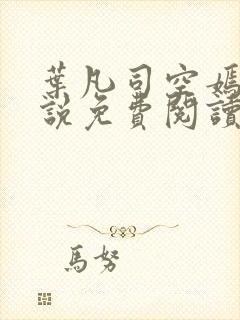 葉凡司空嫣
說免費閱讀
馬努